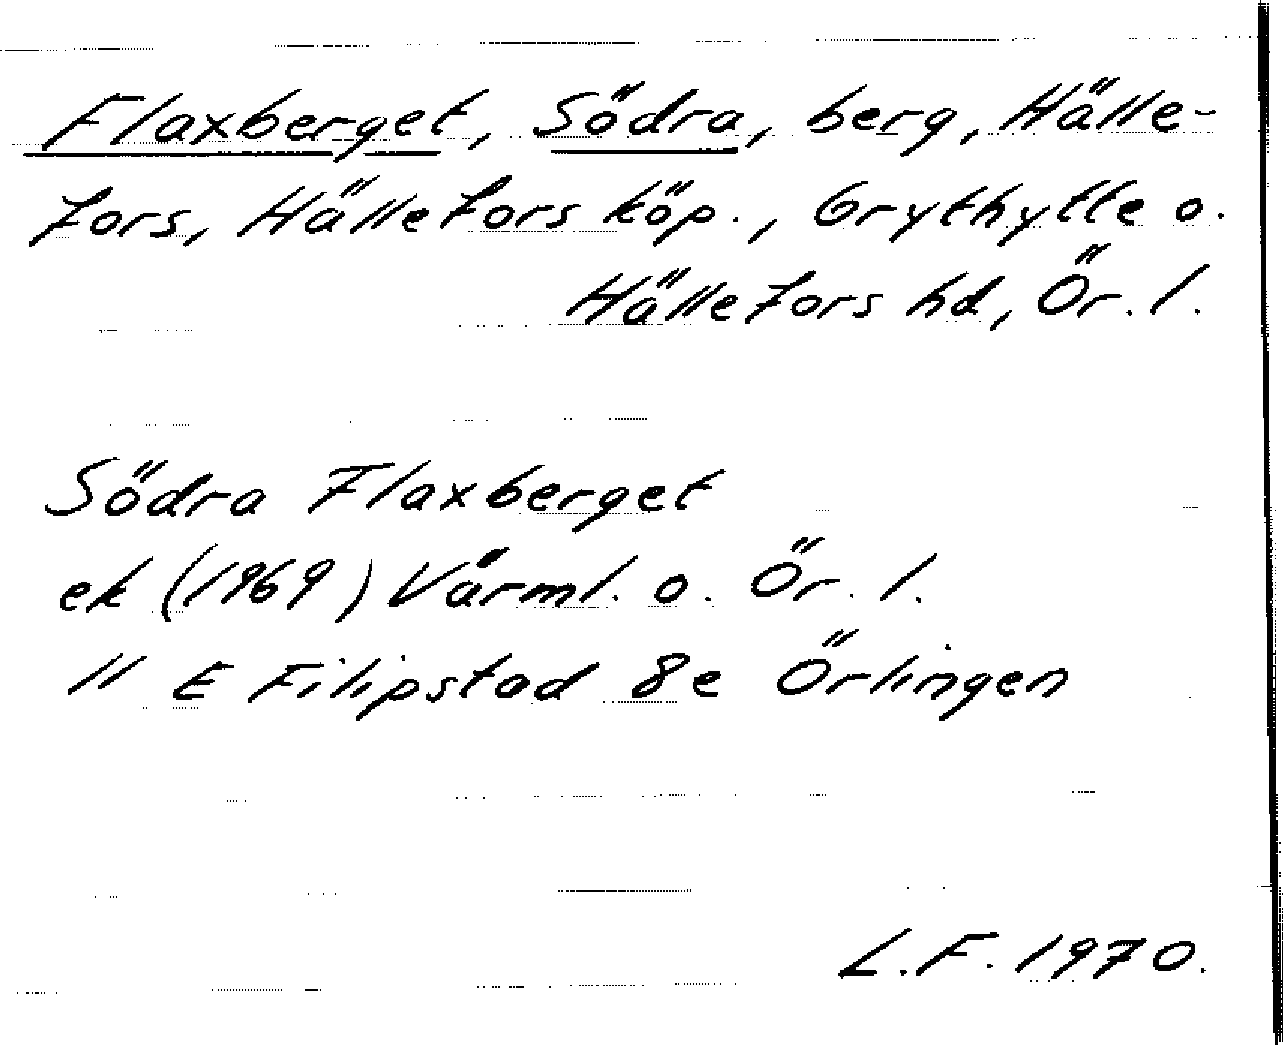 Flaxberget, Södra, berg, Hälle-
fors, Hällefors köp., Grythytte o.
Hällefors hd, Ör. l.
Södra Flaxberget
ek (1969) Värml. o. Ör. l.
11 E Filipstad 8e Örlingen
L.F. 1970.